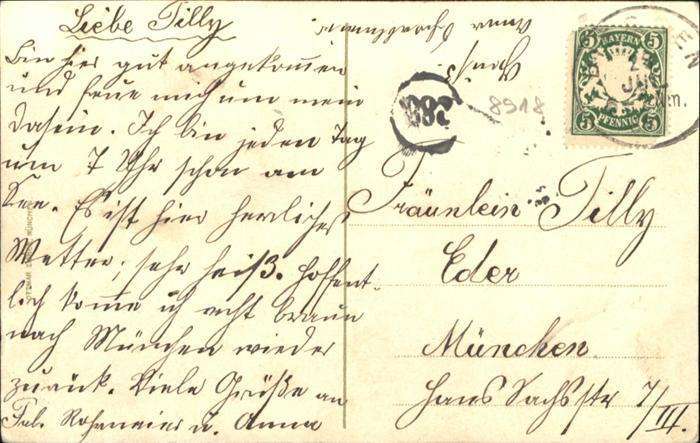 Liebe Tilly
Bin hier gut angekommen
und freue mich um mein
Dasein. Ich bin jeden Tag
um 7 Uhr schon am
See. Es ist hier herrliches
Wetter; sehr heiß. Hoffent-
lich komme ich recht braun
nach München wieder
zurück. Viele Grüße an
Frl. Rosmeier u. Anna
Anna
BAYERN
5 5
5 5
PFENNIG
8918
Fräulein Tilly
Eder
München.
Hans Sachsstr 7/III.